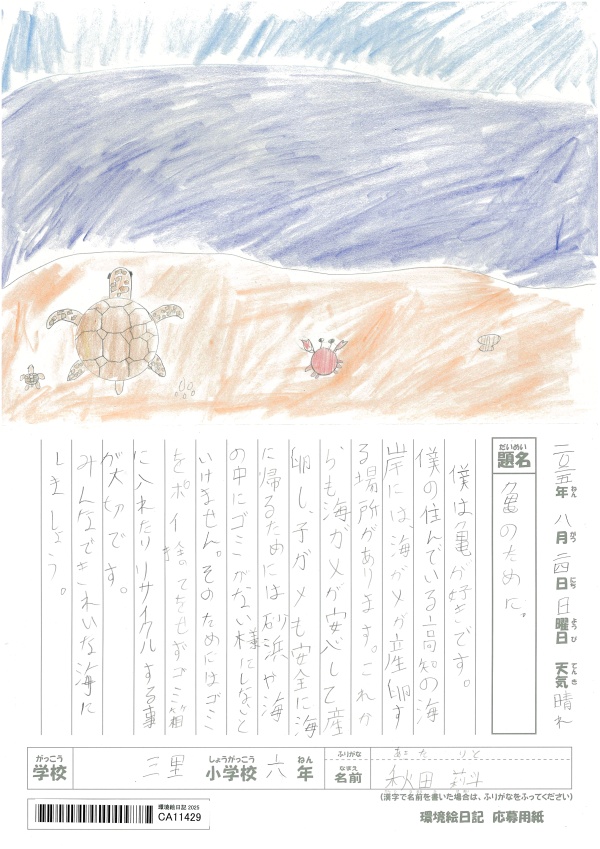 二〇二五年 八月 二四日 日曜日 天気 晴れ
ねん がつ にち ようび てんき
だいめい
題名
亀のために。
僕は亀が好きです。
僕の住んでいる高知の海
岸には、海ガメが産卵す
る場所があります。これか
らも海ガメが安心して産
卵し、子ガメも安全に海
に帰るためには砂浜や海
の中にゴミがない様にしないと
いけません。そのためにはゴミ
をポイ捨のてをせずゴミ箱
に入れたりリサイクルする事
が大切です。
みんなできれいな海に
しましょう。
がっこう
学校
三里 小学校 六年
しょうがっこう ねん
ふりがな あきた りと
なまえ
名前 秋田 莉斗
(漢字で名前を書いた場合は、ふりがなをふってください)
環境絵日記 2025
CA11429
環境絵日記 応募用紙